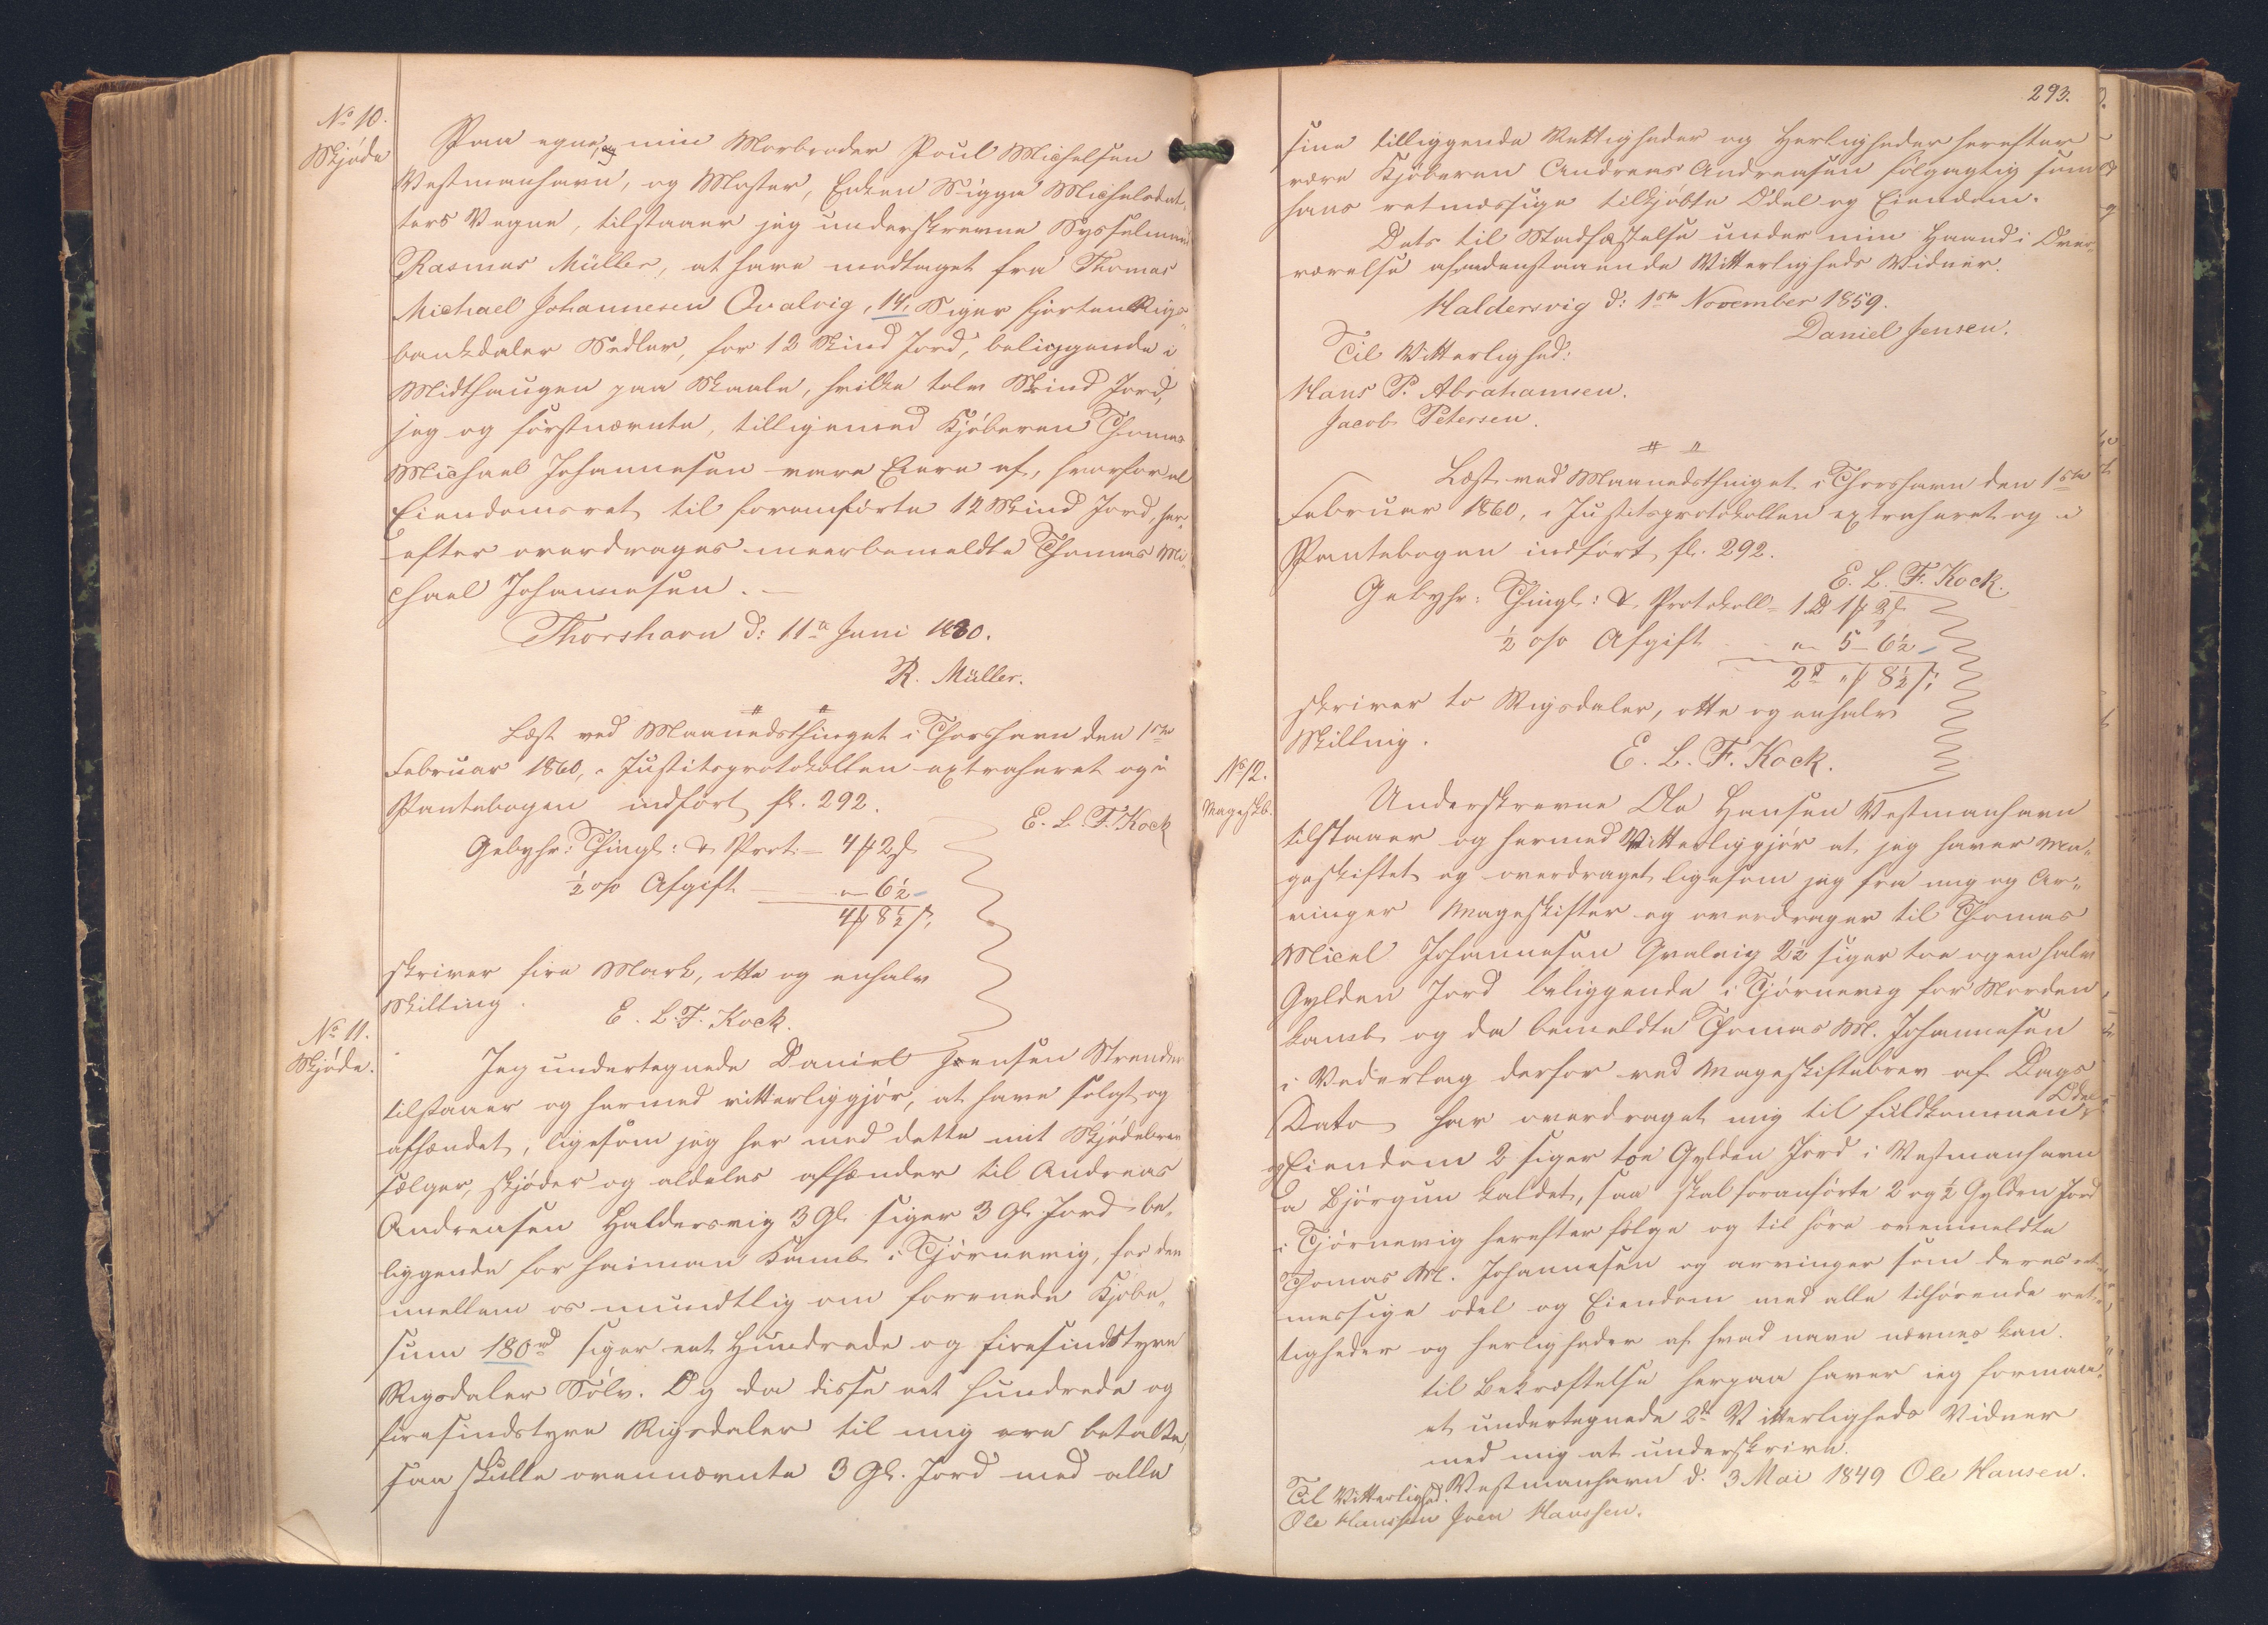 No 10.
Skjøde
Paa egne og min Morbroder Poul Michelsen
Vestmanhavn, og Moster, Enken Sigga Michelsdat-
ters Vegne, tilstaaer jeg underskrevne Sysselmand
Rasmus Müller, at have modtaget fra Thomas
Michael Johannesen Qvalvig, 14, Siger fjorten Rigs-
bankdaler Sedler, for 12 Skind Jord, beliggende i
Midthaugen paa Skaale, hvilke tolv Skind Jord,
jeg og førstnævnte, tilligemed Kjøberen Thomas
Michael Johannesen vare Eiere af, hvorfor al
Eiendomsret til foranførte 12 Skind Jord, her-
efter overdrages meerbemeldte Thomas Mi-
chael Johannesen. —
Thorshavn d: 11te Juni 1830.
R. Müller.
Læst ved Maanedsthinget i Thorshavn den 1ste
Februar 1860, i Justitsprotokollen extraheret og i
Pantebogen indført fl. 292.
E. L. F. Kock
Gebyhr: Thingl: & Prot. — 4 ꟿ 2 ß
½ o/o Afgift — " — 6½ —
4 ꟿ 8½ ß,
skriver fire Mark, otte og enhalv
Skilling.
E. L. F. Kock.
No 11.
Skjøde.
Jeg undertegnede Daniel Joensen Strender
tilstaaer og hermed vitterliggjør, at have solgt og
afhændet, ligesom jeg her med dette mit Skjødebrev
sælger, skjøder og aldeles afhænder til Andreas
Andreasen Haldersvig 3 Gl. siger 3 Gl. Jord be-
liggende for haiman Kamb i Tjørnevig, for den
imellem os mundtlig om forenede Kjøbe-
sum 180 rd siger eet Hundrede og firesindstyve
Rigsdaler Sølv. Og da disse eet hundrede og
firesindstyve Rigsdaler til mig ere betalte,
saa skulle ovennævnte 3 Gl. Jord med alle
293.
sine tilliggende Rettigheder og Herligheder herefter
være Kjøberen Andreas Andreasen følgagtig som
hans retmæssige tilkjøbte Odel og Eiendom.
Dets til Stadfæstelse under min Haand i Over-
værelse af medenstaaende Vitterligheds Vidner.
Haldersvig d: 1ste November 1859.
Daniel Jensen.
Til Vitterlighed:
Hans P. Abrahamsen.
Jacob Petersen.
Læst ved Maanedsthinget i Thorshavn den 1ste
Februar 1860, i Justitsprotokollen extraheret og i
Pantebogen indført, fl. 292.
E. L. F. Kock.
Gebyhr: Thingl: & Protokoll — 1 rd 1 ꟿ 2 ß
½ o/o Afgift — " — 5 — 6½ —
2 rd " ꟿ 8½ ß,
skriver to Rigsdaler, otte og enhalv
Skilling.
E. L. F. Kock.
No 12.
Mageskb.
Underskrevne Ole Hansen Vestmanhavn
tilstaaer og hermed Vitterliggjør at jeg haver ma-
geskiftet og overdraget ligesom jeg fra mig og Ar-
vinger Mageskifter og overdrager til Thomas
Micel Johannesen Qvalvig 2½ siger toe og en halv
Gylden Jord beliggende i Tjørnevig for Norden
kamb og da bemeldte Thomas M. Johannesen
i Vederlag derfor ved Mageskiftebrev af Dags
Dato har overdraget mig til fuldkommen Odel
og Eiendom 2 siger toe Gylden Jord i Vestmanhavn
a Bjørgun kaldet, saa skal foranførte 2 og ½ Gylden Jord
i Tjørnevig herefter følge og til høre ovenmeldte
Thomas M. Johannesen og arvinger som deres ret-
messige odel og Eiendom med alle tilhørende ret-
tigheder og herligheder af hvad navn nævnes kan.
til Bekræftelse herpaa haver ieg forman-
et undertegnede 2de Vitterligheds Vidner
med mig at underskrive.
Vestmanhavn d. 3 Mai 1849 Ole Hansen.
Til Vitterlighed:
Ole Hanssen Joen Hanssen.